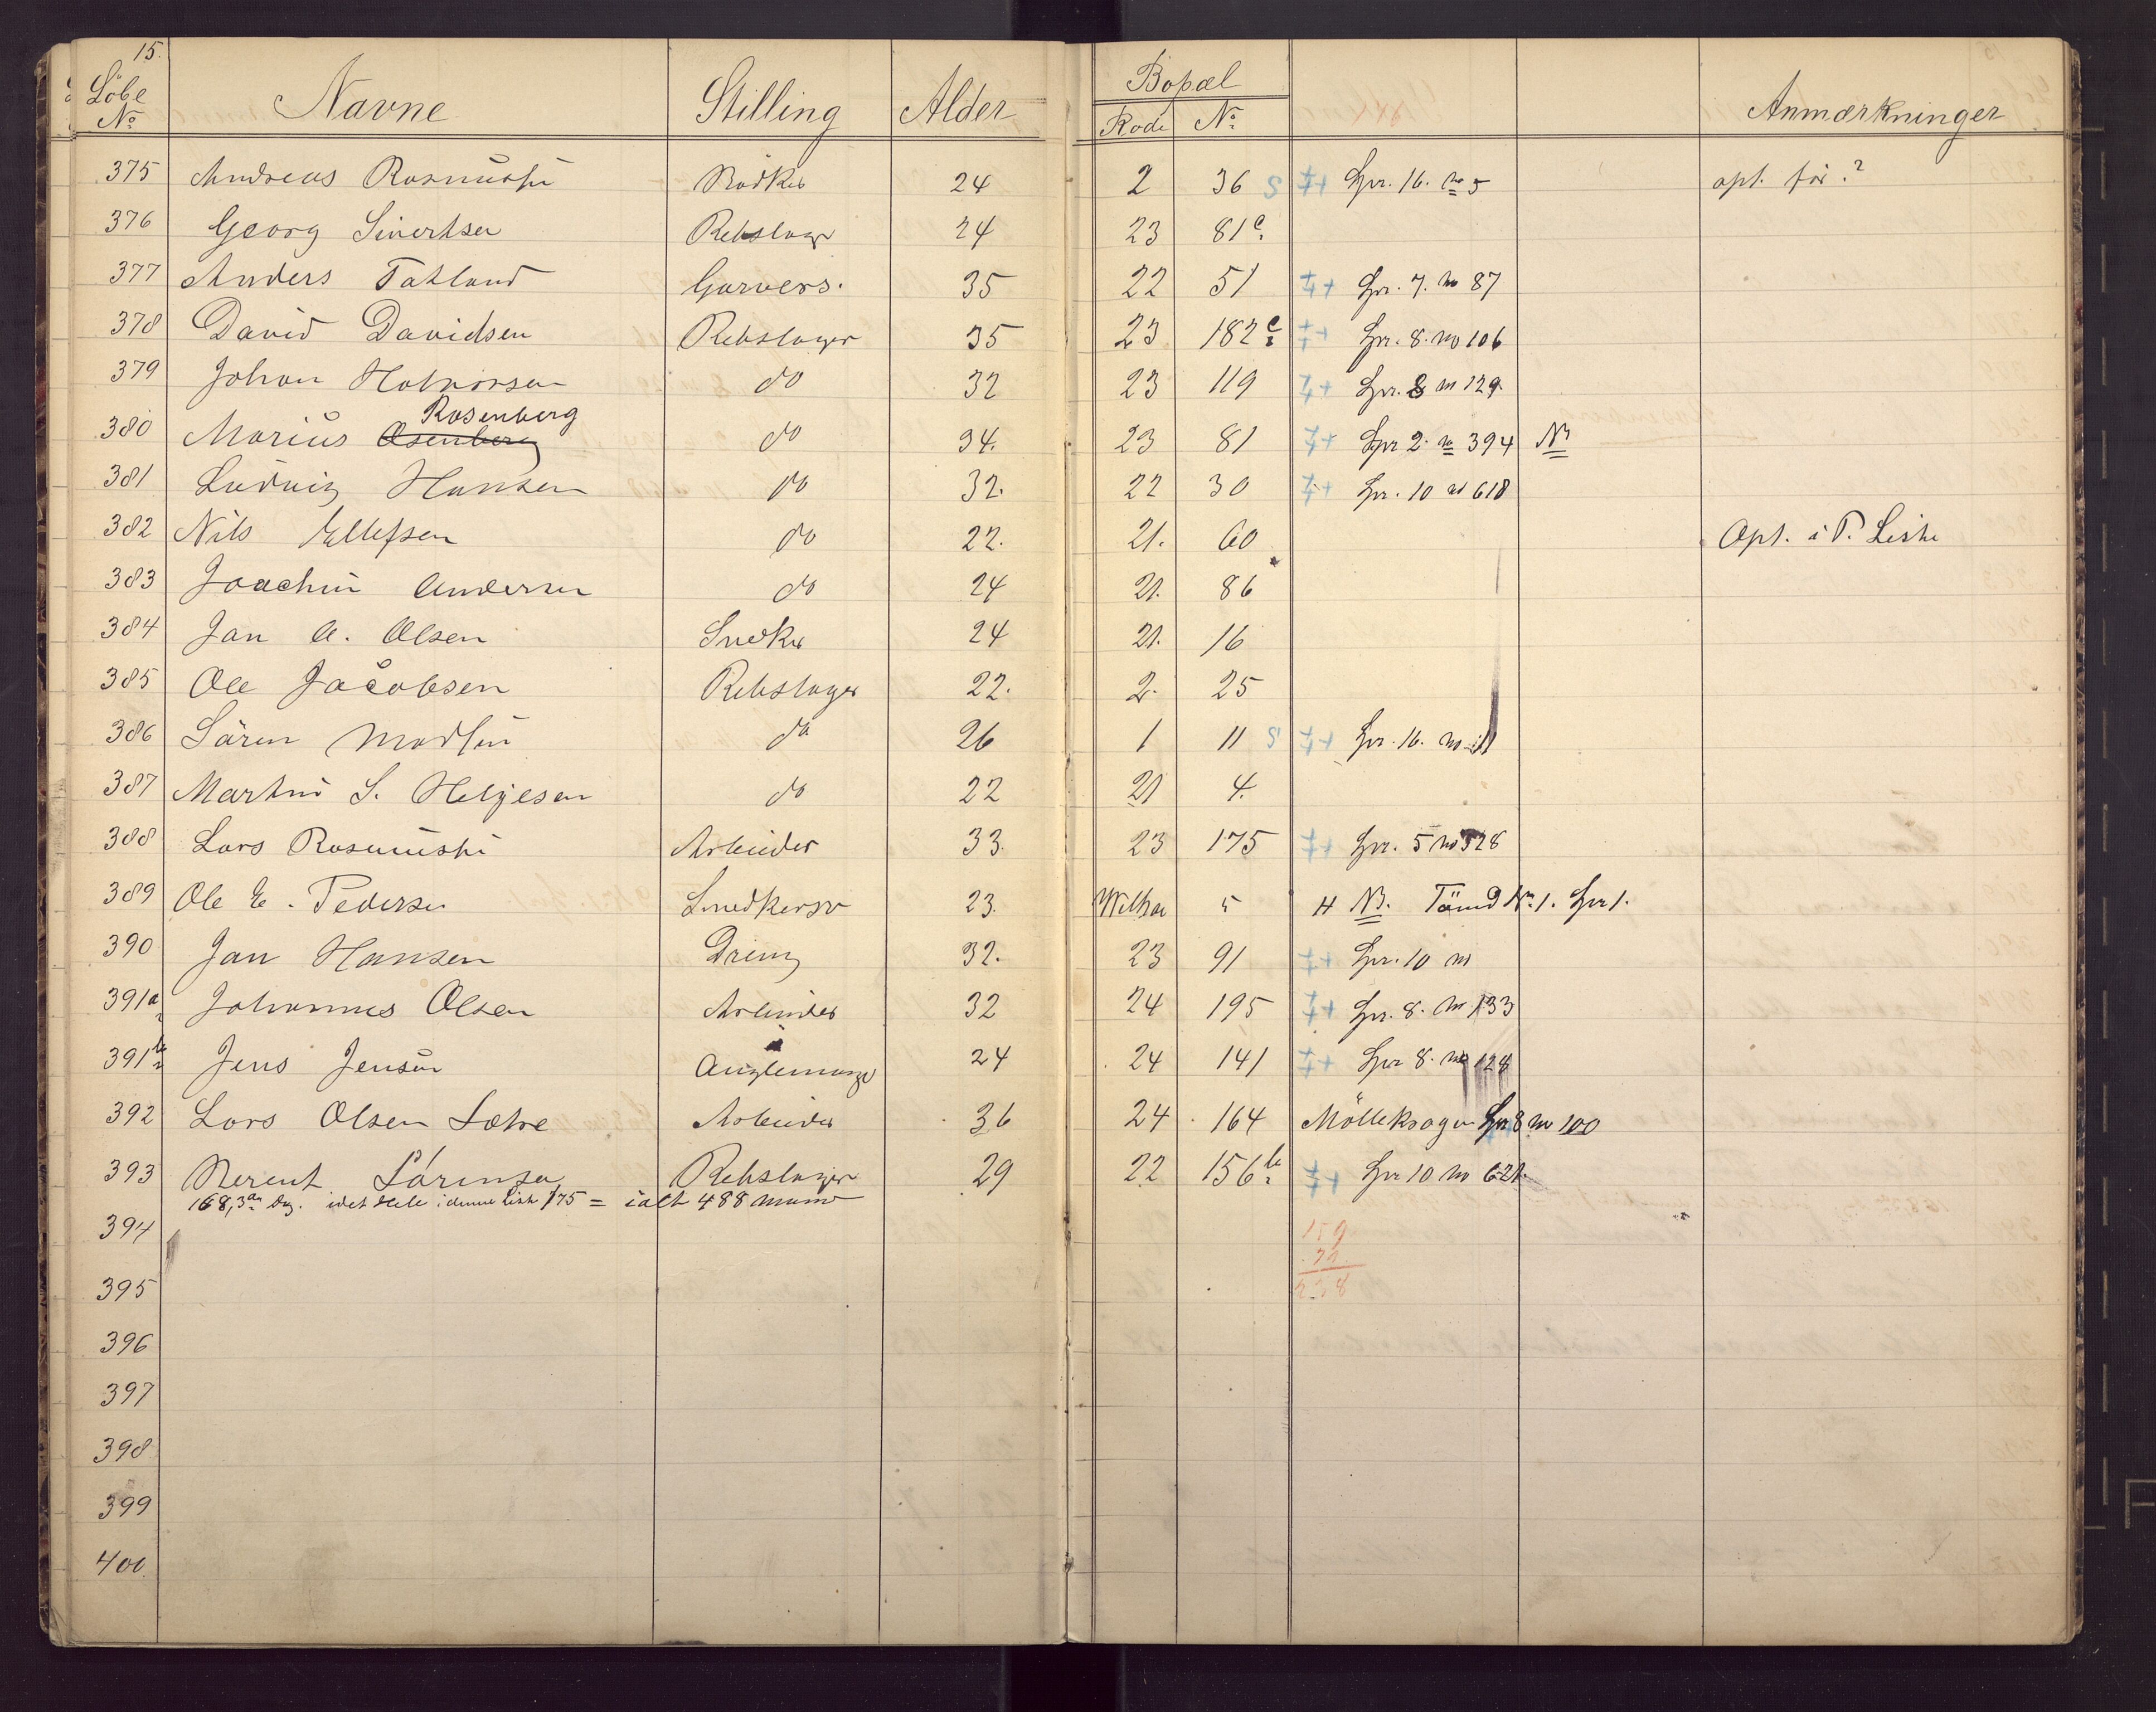 15.
Löbe No Navne Stilling Alder Bopæl Rode No Anmærkninger
375 Andreas Rasmussen Bödker 24 2 36 S ++ Spr. 16. no 5 opt. før?
376 Georg Sivertsen Rebslager 24 23 81c
377 Anders Tatland Garvers. 35 22 51 ++ Spr. 7. no 87
378 David Davidsen Rebslager 35 23 182c ++ Spr. 8. no 106
379 Johan Halvorsen do 32 23 119 ++ Spr. 8 no 129
Rosenberg
380 Marius Osenberg do 34. 23 81 ++ Spr 2 no 394 NB
381 Ludvig Hansen do 32. 22 30 ++ Spr. 10 no 618
382 Nils Ellefsen do 22. 21. 60 Opt. i P. Liste
383 Joachim Andersen do 24 21. 86
384 Jan A. Olsen Snedker 24 21. 16
385 Ole Jacobsen Rebslager 22. 2. 25
386 Sören Madsen do 26 1 11 S ++ Spr. 16. no 11
387 Martin S. Helgesen do 22 21 4.
388 Lars Rasmussen Arbeider 33 23 175 ++ Spr. 5 no 528
389 Ole E. Pedersen Snedkersv 23. 5 H NB. Tömd No 1. Spr 1.
390 Jan Hansen Dreng 32. 23 91 ++ Spr. 10 no
391a Johannes Olsen Arbeider 32 24 195 ++ Spr. 8. no 133
391b Jens Jensen 24 24 141 ++ Spr 8. no 128
392 Lars Olsen Sætre Arbeider 36 24 164 Möllekragen Spr 8 no 100
393 Berent Sörensen Rebslager 29 22 156b ++ Spr 10 no 621
168, 3die Dog. idet Hele i denne Liste 175 = ialt 488 mand
394 159
79
395 238
396
397
398
399
400